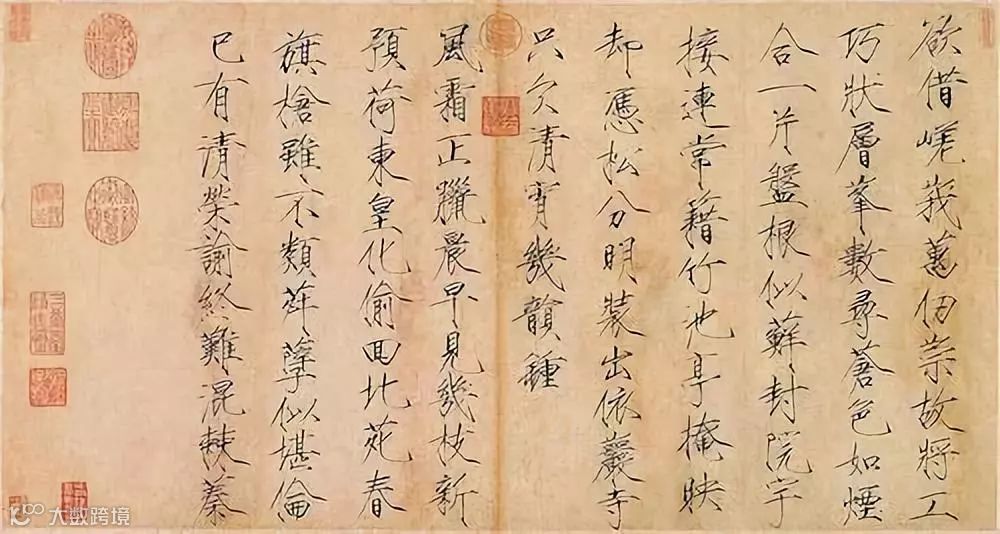 欲借嵯峩萬仞崇故將工
巧狀層峯數尋蒼色如煙
合一片盤根似蘚封院宇
接連常藉竹池亭掩映
却憑松分明裝出依巖寺
只欠清宵幾韻鍾
風霜正臘晨早見幾枝新
預荷東皇化偷回北苑春
旗槍雖不類荈孽似堪倫
已有清榮諭終難混棘蓁
大数跨境